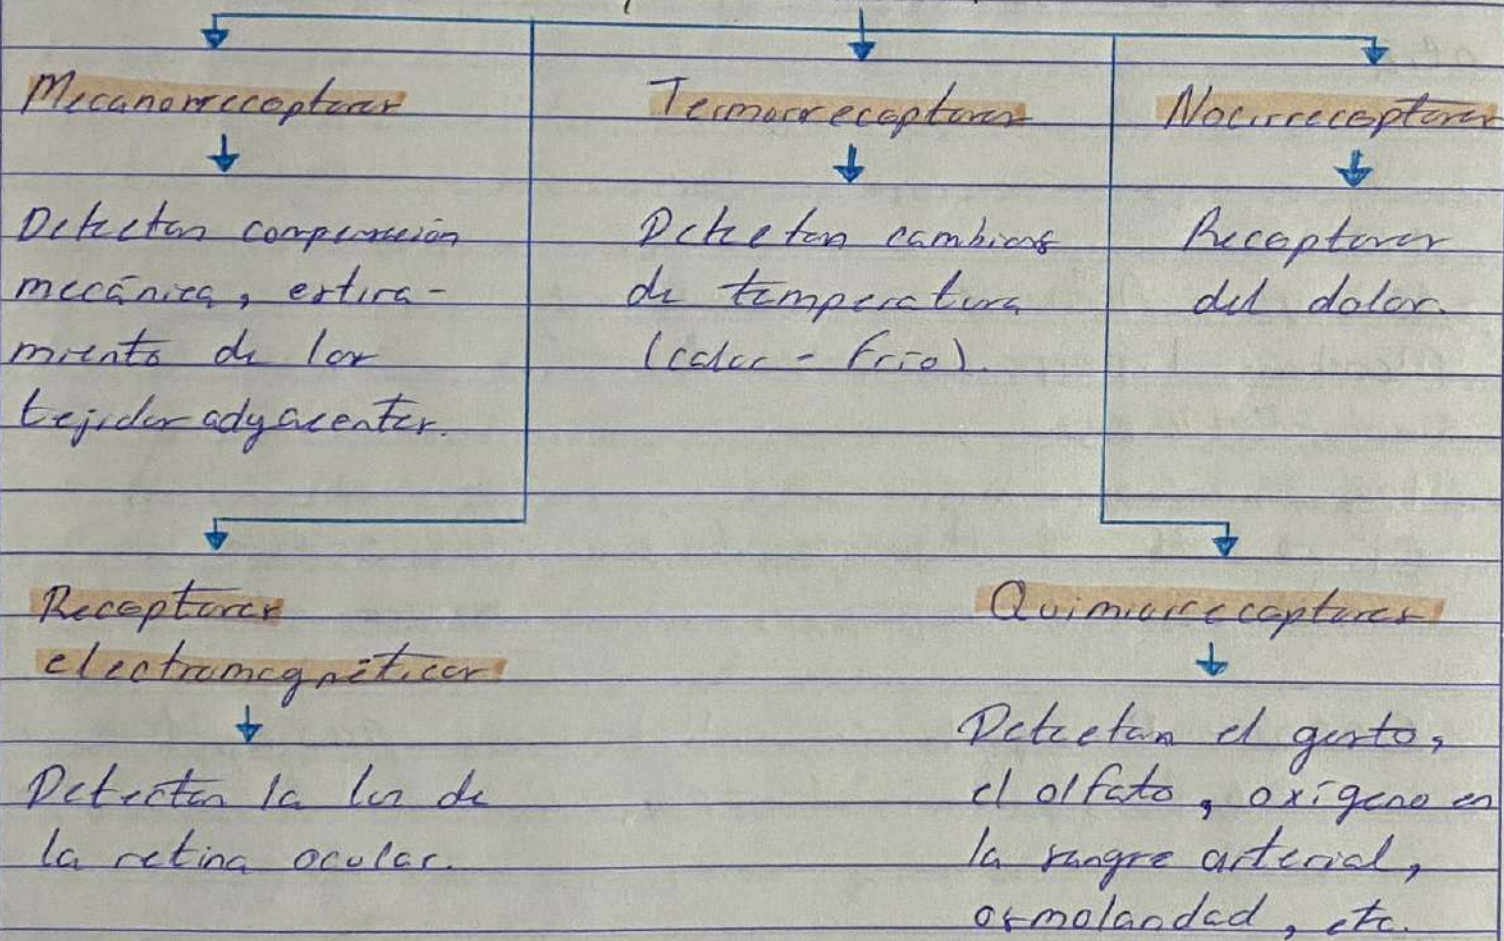 Mecanorreceptores
Detectan compensación
mecánica, estira-
miento de los
tejidos adyacentes.
Termorreceptores
Detectan cambios
de temperatura
(calor - frío).
Nocirreceptores
Receptores
del dolor.
Receptores
electromagnéticos
Detectan la luz de
la retina ocular.
Quimiorreceptores
Detectan el gusto,
el olfato, oxígeno en
la sangre arterial,
osmolandad, etc.